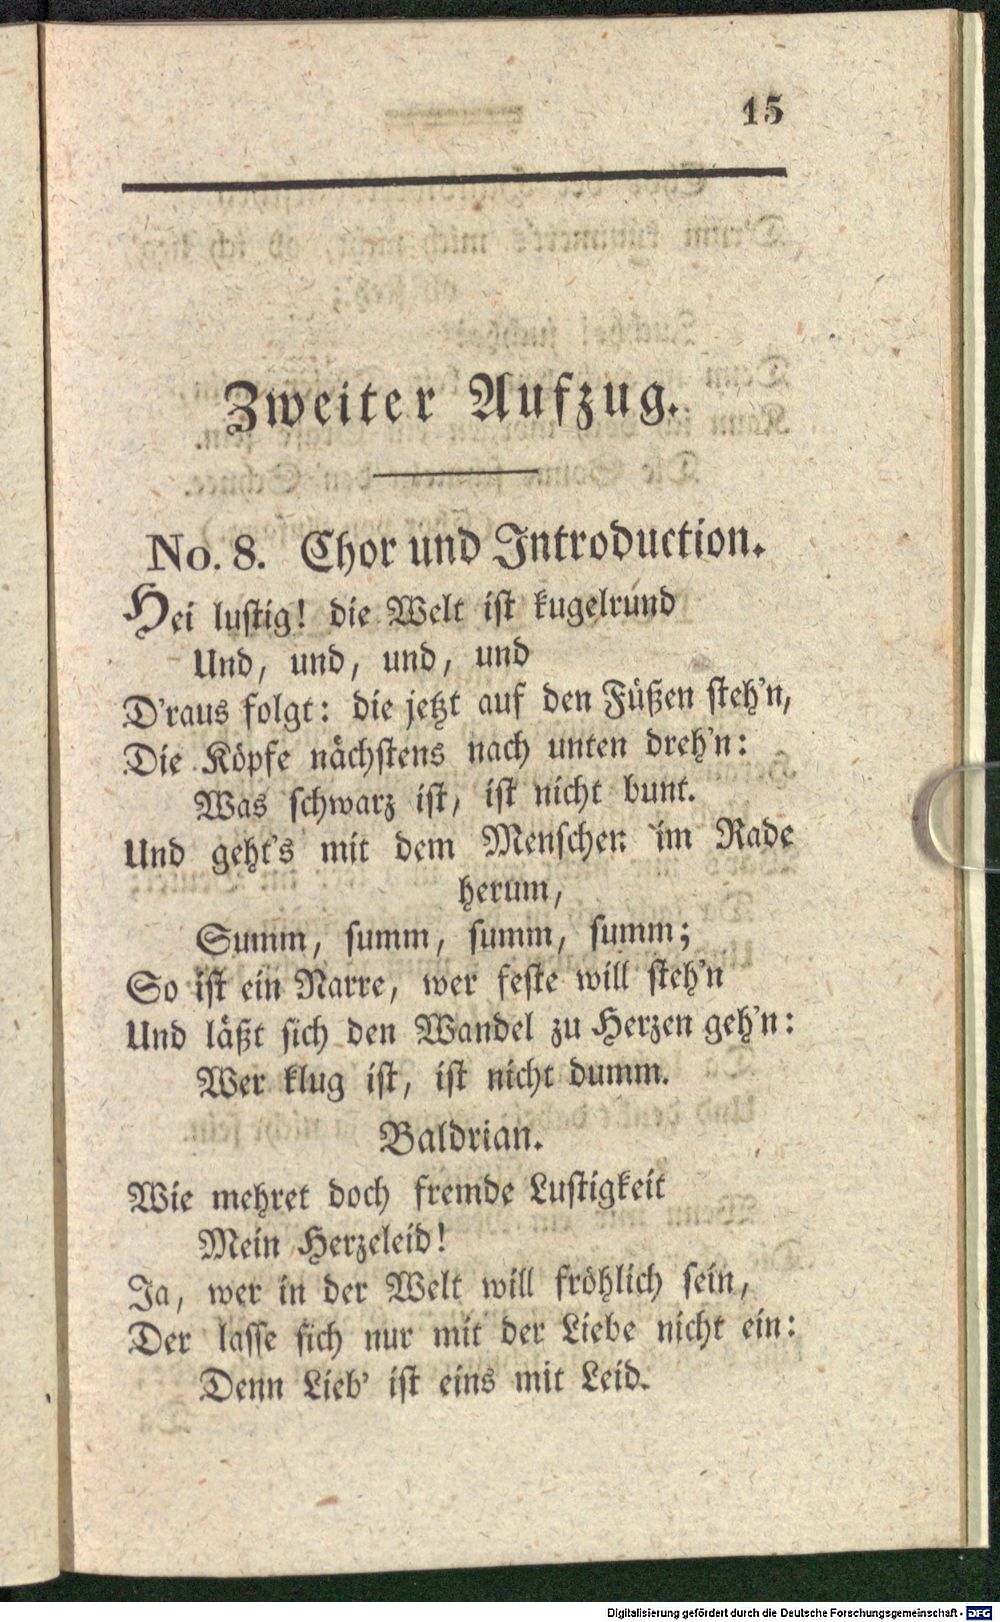 15
Zweiter Aufzug.
No. 8. Chor und Introduction.
Hei lustig! die Welt ist kugelrund
Und, und, und, und
D'raus folgt: die jetzt auf den Füßen steh'n,
Die Köpfe nächstens nach unten dreh'n:
Was schwarz ist, ist nicht bunt.
Und geht's mit dem Menschen im Rade
herum,
Summ, summ, summ, summ;
So ist ein Narre, wer feste will steh'n
Und läßt sich den Wandel zu Herzen geh'n:
Wer klug ist, ist nicht dumm.
Baldrian.
Wie mehret doch fremde Lustigkeit
Mein Herzeleid!
Ja, wer in der Welt will fröhlich sein,
Der lasse sich nur mit der Liebe nicht ein:
Denn Lieb' ist eins mit Leid.
Digitalisierung gefördert durch die Deutsche Forschungsgemeinschaft - DFG